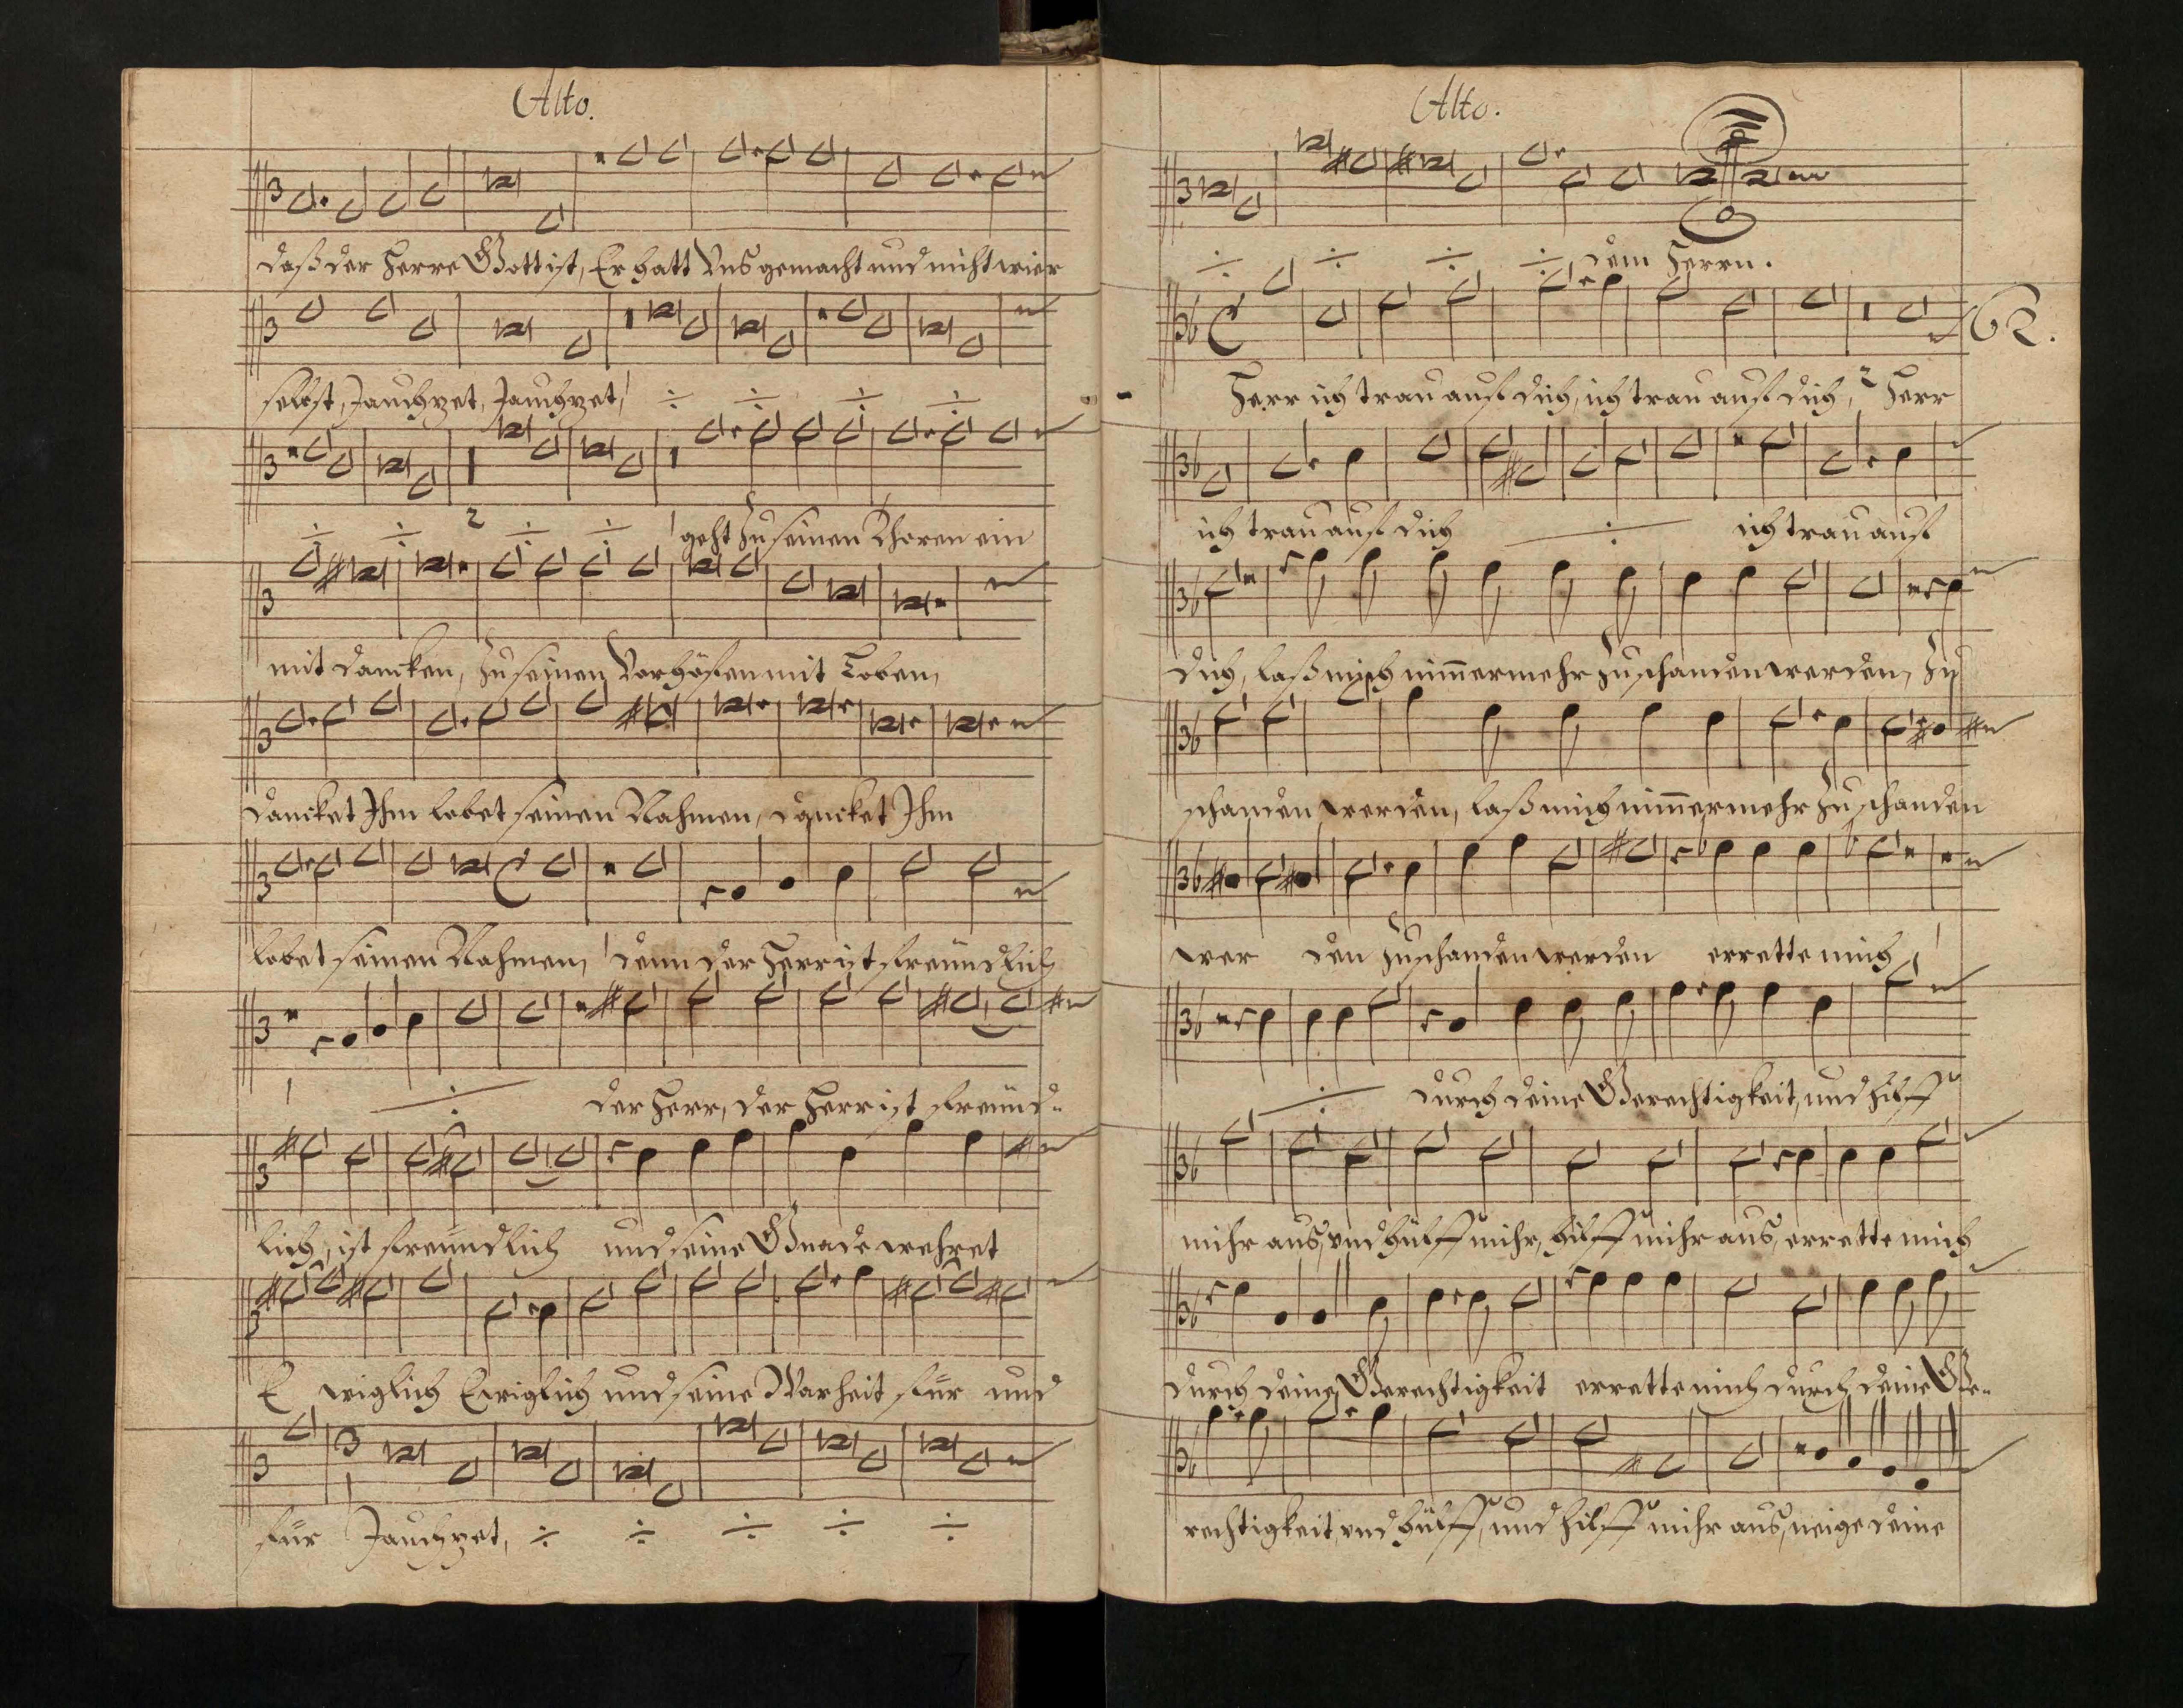 Alto.
daß der Herre Gott ist, Er hatt Uns gemacht und nicht wier
selbst, Jauchzet, Jauchzet, ÷ ÷ ÷ ÷
÷ ÷ 2 ÷ ÷ geht zu seinen Thoren ein
mit dancken, zu seinen Vorhöfen mit Loben,
dancket Ihm lobet seinen Nahmen, dancket Ihm
lobet seinen Nahmen, denn der Herr ist freündlich
÷ der Herr, der Herr ist freünd-
lich, ist freündlich und seine Gnade wehret
E wiglich Ewiglich und seine Warheit für und
für Jauchzet, ÷ ÷ ÷ ÷ ÷
Alto.
÷ ÷ ÷ ÷ dem Herrn.
62.
Herr ich trau auf dich, ich trau auf dich, 2 Herr
ich trau auf dich ÷ ich trau auf
dich, laß mich nim̄ermehr zu schanden werden, zu
schanden werden, laß mich nim̄ermehr zu schanden
wer den zu schanden werden errette mich,
÷ durch deine Gerechtigkeit, und hilff
mihr aus, und hülff mihr, hilff mihr aus, errette mich
durch deine Gerechtigkeit errette mich durch deine Ge-
rechtigkeit, und hülff, und hilff mihr aus, neige deine